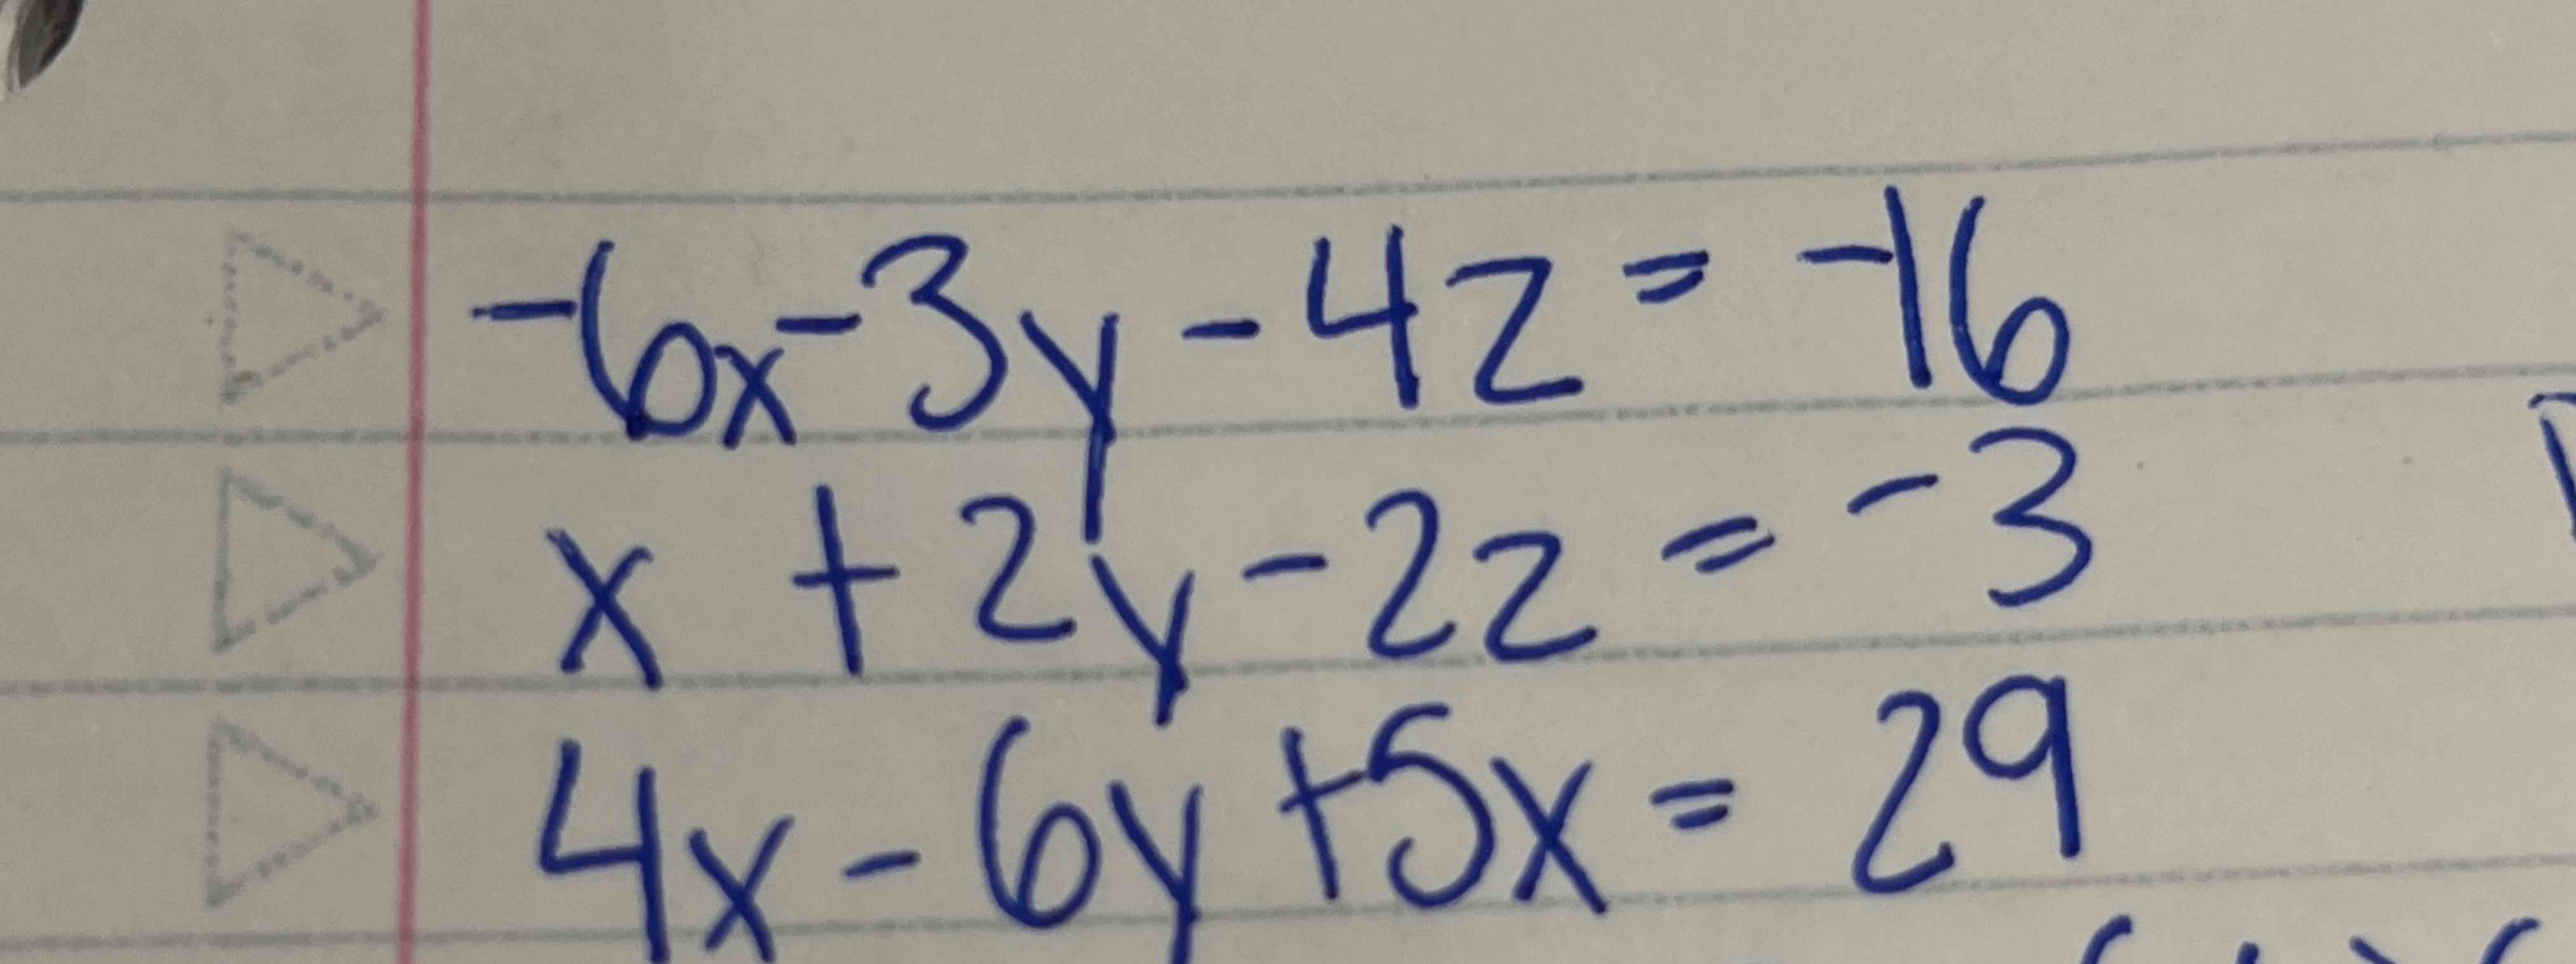 -6x-3y-4z=-16
x+2y-2z=-3
4x-6y+5x=29